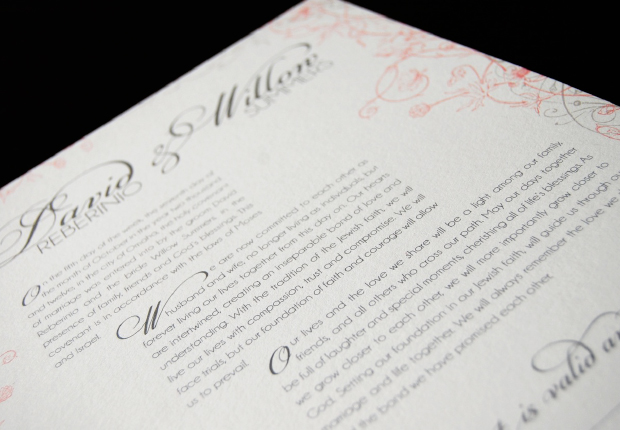 David & Willow
REBERINIO SUMMERS
On the fifth day of the week, the
our month of
of marriage was entered into by the
Reberinio and the bride, Willow Summers, in the
presence of family, friends and God's blessings. This
covenant is in accordance with the laws of Moses
and Israel.
We are now committed to each other as
husband and wife, no longer living as individuals, but
forever living our lives together from this day on. Our hearts
are intertwined, creating an inseparable bond of love and
understanding. With the tradition of the Jewish faith, we will
live our lives with compassion, trust and compromise. We will
face trials, but our foundation of faith and courage will allow
us to prevail.
Our lives and the love we share will be a light among our family,
friends, and all others who cross our path. May our days together
be full of laughter and special moments, cherishing all of life's blessings. As
we grow closer to each other, we will more importantly grow closer to
God. Setting our foundation in our Jewish faith, will guide us through our
marriage and life together. We will always remember the love we
the bond we have promised each other.
is valid